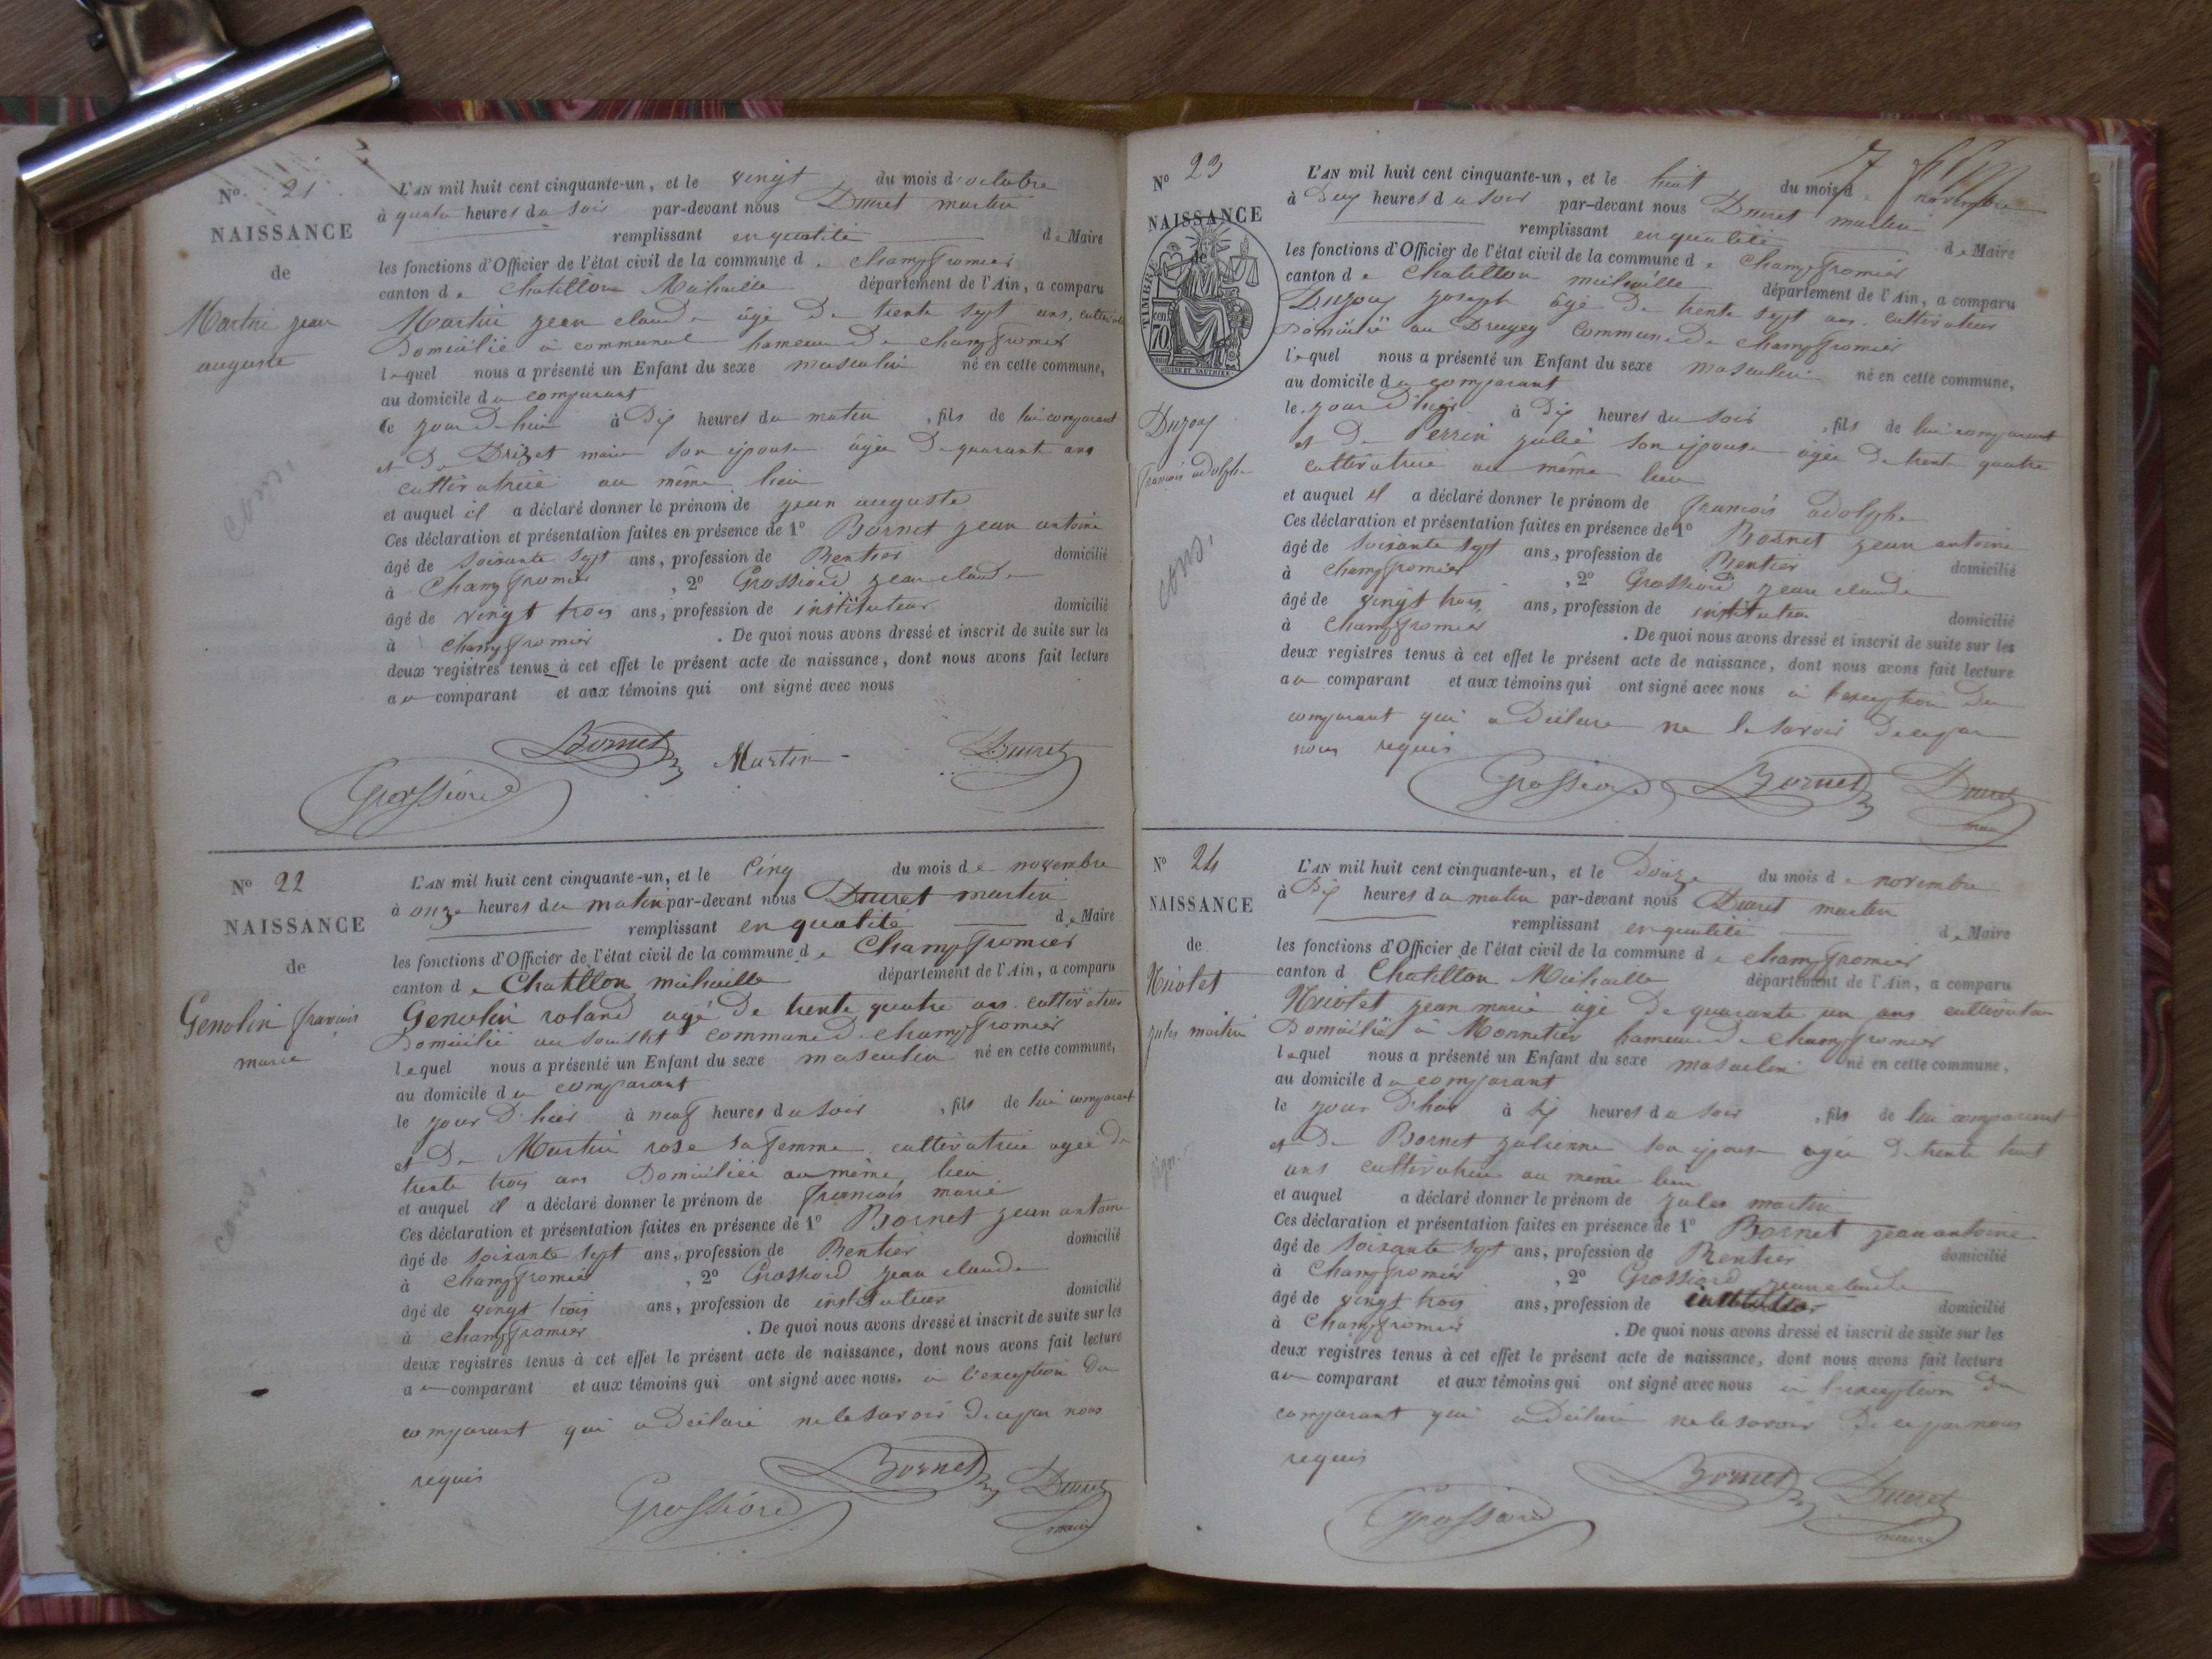 N° 21
NAISSANCE
de
Martin jean
auguste
cons.
L'AN mil huit cent cinquante-un, et le vingt du mois d'octobre
à quatre heures du soir par-devant nous Ducret martin
remplissant en qualité de Maire
les fonctions d'Officier de l'état civil de la commune de Champfromier
canton de Chatillon Michaille département de l'Ain, a comparu
Martin jean claude âgé de trente sept ans, cultivateur
Domicilié à communal hameau de champfromier
lequel nous a présenté un Enfant du sexe masculin né en cette commune,
au domicile du comparant
le jour d'hier à Dix heures du matin, fils de lui comparant
et De Brizet marie son épouse âgée De quarante ans
cultivatrice au même lieu
et auquel il a déclaré donner le prénom de jean auguste
Ces déclaration et présentation faites en présence de 1° Bornet jean antoine
âgé de soixante sept ans, profession de Rentier domicilié
à Champfromier, 2° Grossiord jean claude
âgé de vingt trois ans, profession de instituteur domicilié
à champfromier. De quoi nous avons dressé et inscrit de suite sur les
deux registres tenus à cet effet le présent acte de naissance, dont nous avons fait lecture
au comparant et aux témoins qui ont signé avec nous
Bornet Martin Ducret
Grossiord
N° 22
NAISSANCE
de
Genolin francois
marie
cons.
L'AN mil huit cent cinquante-un, et le Cinq du mois de novembre
à onze heures du matin par-devant nous Ducret martin
remplissant en qualité de Maire
les fonctions d'Officier de l'état civil de la commune de Champfromier
canton de Chatillon michaille département de l'Ain, a comparu
Genolin roland agé De trente quatre ans cultivateur
Domicilié au commune de champfromier
lequel nous a présenté un Enfant du sexe masculin né en cette commune,
au domicile du comparant
le jour D'hier à neuf heures du soir, fils de lui comparant
et De Martin rose sa femme cultivatrice agée de
trente trois ans Domiciliée au même lieu
et auquel il a déclaré donner le prénom de francois marie
Ces déclaration et présentation faites en présence de 1° Bornet jean antoine
âgé de soixante sept ans, profession de Rentier domicilié
à champfromier, 2° Grossiord jean claude
âgé de vingt trois ans, profession de instituteur domicilié
à champfromier. De quoi nous avons dressé et inscrit de suite sur les
deux registres tenus à cet effet le présent acte de naissance, dont nous avons fait lecture
au comparant et aux témoins qui ont signé avec nous. à l'exception du
comparant qui a Déclaré ne le savoir De ce par nous
requis
Bornet Ducret
Grossiord maire
7
N° 23
NAISSANCE
de
TIMBRE
70
Duzouz
francois adolphe
cons.
L'AN mil huit cent cinquante-un, et le huit du mois de novembre
à Deux heures du soir par-devant nous Ducret martin
remplissant en qualité de Maire
les fonctions d'Officier de l'état civil de la commune de Champfromier
canton de Chatillon michaille département de l'Ain, a comparu
joseph âgé De trente sept ans cultivateur
Domicilié au commune De champfromier
lequel nous a présenté un Enfant du sexe masculin né en cette commune,
au domicile du comparant
le jour D'hier à Dix heures du soir, fils de lui comparant
et De Perrin julie son épouse âgée De trente quatre
cultivatrice au même lieu
et auquel il a déclaré donner le prénom de francois adolphe
Ces déclaration et présentation faites en présence de 1° Bornet jean antoine
âgé de soixante sept ans, profession de Rentier domicilié
à Champfromier, 2° Grossiord jean claude
âgé de vingt trois ans, profession de instituteur domicilié
à Champfromier. De quoi nous avons dressé et inscrit de suite sur les
deux registres tenus à cet effet le présent acte de naissance, dont nous avons fait lecture
au comparant et aux témoins qui ont signé avec nous à l'exception Du
comparant qui a Déclaré ne le savoir De ce par
nous requis
Grossiord Bornet Ducret
maire
N° 24
NAISSANCE
de
jules martin
L'AN mil huit cent cinquante-un, et le Douze du mois de novembre
à Dix heures du matin par-devant nous Ducret martin
remplissant en qualité de Maire
les fonctions d'Officier de l'état civil de la commune de champfromier
canton d Chatillon Michaille département de l'Ain, a comparu
jean marie âgé De quarante un ans cultivateur
Domicilié à Monnetier hameau de champfromier
lequel nous a présenté un Enfant du sexe masculin né en cette commune,
au domicile du comparant
le jour D'hier à Six heures du soir, fils de lui comparant
et De Bornet julienne son épouse agée De trente huit
ans cultivatrice au même lieu
et auquel a déclaré donner le prénom de jules martin
Ces déclaration et présentation faites en présence de 1° Bornet jean antoine
âgé de soixante sept ans, profession de Rentier domicilié
à Champfromier, 2° Grossiord jean claude
âgé de vingt trois ans, profession de instituteur domicilié
à Champfromier. De quoi nous avons dressé et inscrit de suite sur les
deux registres tenus à cet effet le présent acte de naissance, dont nous avons fait lecture
au comparant et aux témoins qui ont signé avec nous à l'exception Du
comparant qui a Déclaré ne le savoir De ce par nous
requis
Bornet Ducret
Grossiord maire